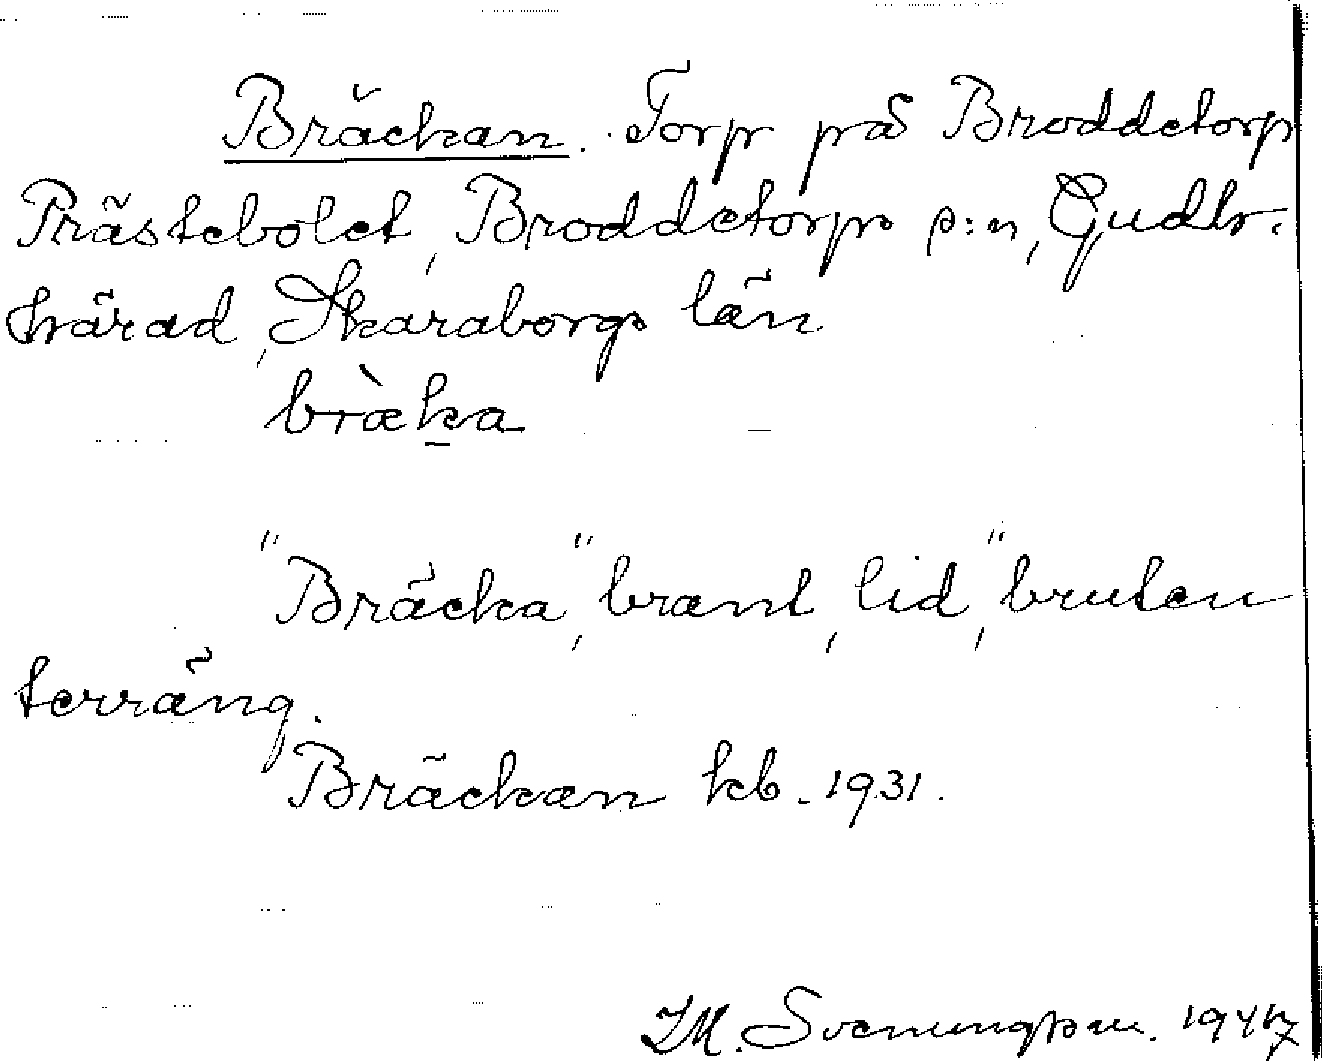 Bräckan. Torp på Broddetorp
Prästebolet, Broddetorps s:n, Gudh.
härad, Skaraborgs län
bræ̀ka
"Bräcka", brant, lid, "bruten
terräng.
Bräckan kb. 1931.
Svenungsson. 1947